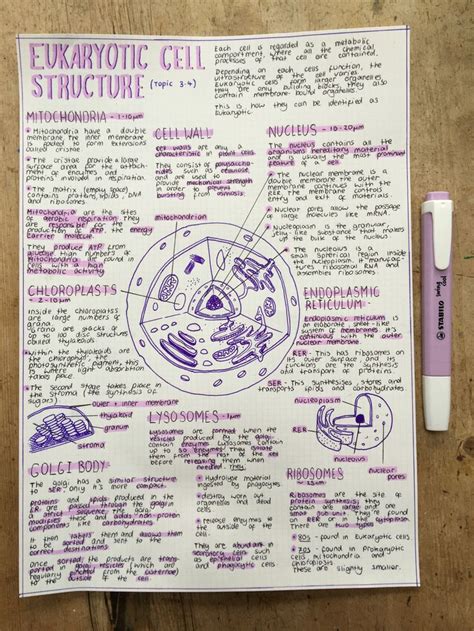 EUKARYOTIC CELL
STRUCTURE (Topic 3.4)
Each cell is regarded as a metabolic
compartment, where all the chemical
processes of that cell are contained.
Depending on each cells function, the
of the cell varies
eukaryotic cells form larger organelles
they are only building blocks, they also
contain membrane-bound organelles.
this is how they can be identified as
Eukaryotic
MITOCHONDRIA - 1-10μm
• Mitochondria have a double
membrane, the inner membrane
is folded to form extensions
called cristae
• The cristae provide a large
surface area for the attach-
ment of enzymes and
proteins involved in
respiration
• The matrix
contains proteins, lipids, DNA
and ribosomes
Mitochondria are the sites
of aerobic respiration they
are responsible for the
production of ATP, the energy
carrier molecule.
They produce ATP from
glucose
Mitochondria are found in
cells with a
metabolic activity
CELL WALL
Cell walls are only a
characteristic in plant cells
They consist of
such as cellulose,
and are used to provide
mechanical strength
in order to prevent
bursting from osmosis.
mitochondrion
NUCLEUS - 10-20μm
The nucleus contains all the
organisms hereditary material
and is usually the most prominent
feature of a cell
• The nuclear membrane is a
double membrane the outer
membrane continues with the
RER
entry and exit of materials
• Nuclear pores allow the passage
of large molecules like mRNA.
• Nucleoplasm is the granular,
jelly-like substance that makes
up the bulk of the nucleus
• The nucleolus is a
small spherical region inside
the nucleoplasm. It manufac-
tures ribosomal RNA and
assembles ribosomes
CHLOROPLASTS
- 2-10μm
Inside the chloroplasts
are large numbers of
grana.
• Grana are stacks of
up to 100 disc structures
called thylakoids
• within the thylakoids are
the chlorophyll, the
photosynthetic pigment, this
is where light absorption
takes place.
• The second stage takes place
in the stroma (the synthesis of
sugars)
outer + inner membrane
thylakoid
granum
stroma
ENDOPLASMIC
RETICULUM
Endoplasmic reticulum is
an elaborate, sheet-like
system of membranes. It's
continuous with the outer
nuclear membrane
RER - This has ribosomes on
its outer surface and its
functions are the synthesis
and transport of proteins
SER - This synthesises, stores and
transports lipids and carbohydrates
nucleoplasm
RER
nucleolus
nuclear
pores
LYSOSOMES - 1μm
Lysosomes are formed when the
vesicles produced by the golgi
contain enzymes. Lysosomes contain
up to 50 enzymes. They isolate
them from the rest of the cell
before releasing them when
needed. They:
• Hydrolyse material
ingested by phagocytes
• destroy worn out
organelles and dead
cells
• release enzymes to
the outside of the
cell
They are abundant in
secretory cells such
as epithelial cells
and phagocytic cells
GOLGI BODY
The golgi has a similar structure
to SER, only it's more compact.
Proteins and lipids produced in the
ER are passed through the golgi in
a strict sequence. The golgi
modifies these and adds non-protein
components like carbohydrates
It then labels them and allows them
to be sorted and sent to the
correct destinations
Once sorted, the products are trans-
ported in golgi vesicles (which are
regularly pinched from the
to the outside of the cell.
RIBOSOMES
Ribosomes are the site of
protein synthesis, they
contain one large and one
small sub unit. They're found
RER or in the cytoplasm
There are two types:
• 80s - found in Eukaryotic cells
• 70s - found in Prokaryotic
cells, mitochondria and
chloroplasts
These are slightly smaller.
STABILO swing cool